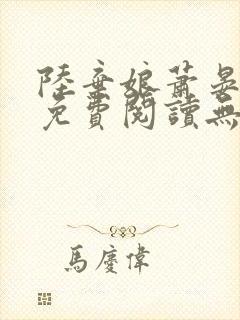 陸棄娘蕭晏
免費閱讀無
馬慶偉